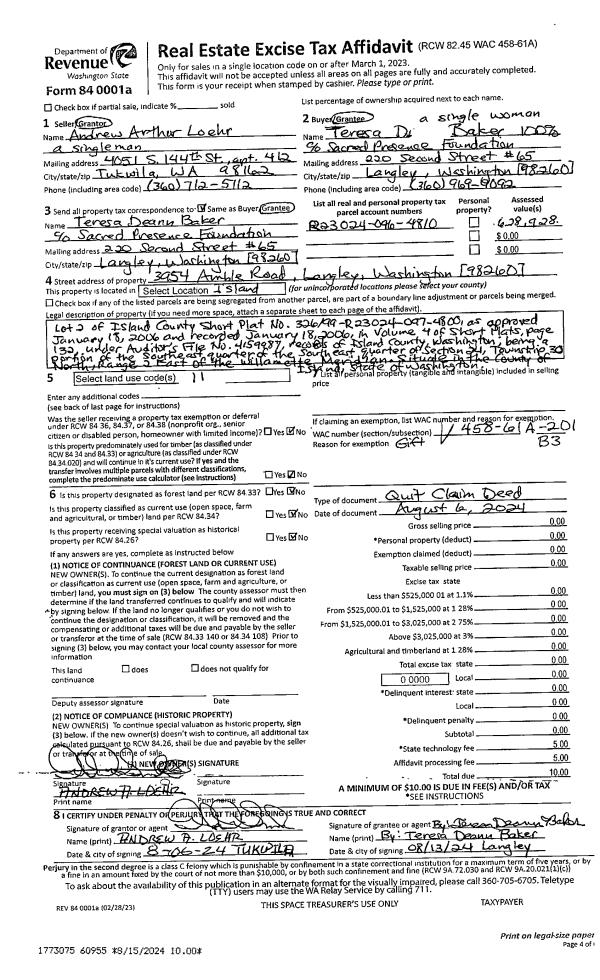 Department of
Revenue
Washington State
Form 84 0001a
Real Estate Excise Tax Affidavit (RCW 82.45 WAC 458-61A)
Only for sales in a single location code on or after March 1, 2023.
This affidavit will not be accepted unless all areas on all pages are fully and accurately completed.
This form is your receipt when stamped by cashier. Please type or print.
Check box if partial sale, indicate % sold
List percentage of ownership acquired next to each name.
1 Seller/Grantor
Name Andrew Arthur Loehr
a single man
Mailing address 4051 S. 144th St, apt. 412
City/state/zip Tukwila, WA 98162
Phone (including area code) (360) 712-5712
2 Buyer/Grantee a single woman
Name Teresa D. Baker 100%
% Sacred Presence Foundation
Mailing address 220 Second Street #65
City/state/zip Langley, Washington [98260]
Phone (including area code) (360) 969-9092
3 Send all property tax correspondence to: Same as Buyer/Grantee
Name Teresa Deann Baker
% Sacred Presence Foundation
Mailing address 220 Second Street #65
City/state/zip Langley, Washington [98260]
List all real and personal property tax parcel account numbers
Personal property?
Assessed value(s)
R23024-096-4810
628,928.
$ 0.00
$ 0.00
4 Street address of property 3954 Amble Road, Langley, Washington [98260]
This property is located in Select Location Island (for unincorporated locations please select your county)
Check box if any of the listed parcels are being segregated from another parcel, are part of a boundary line adjustment or parcels being merged.
Legal description of property (if you need more space, attach a separate sheet to each page of the affidavit).
Lot 2 of Island County Short Plat No. 326/99-R23024-097-4800, as approved
January 18, 2006 and recorded January 18, 2006, in Volume 4 of Short Plats, page
132, under Auditor's File No. 4159987, records of Island County, Washington, being a
portion of the Southeast quarter of the Southeast quarter of Section 24, Township 30
North, Range 2 East of the Willamette Meridian. Situate in the County of
Island, State of Washington.
5 Select land use code(s) 11
Enter any additional codes
(see back of last page for instructions)
Was the seller receiving a property tax exemption or deferral
under RCW 84 36, 84.37, or 84.38 (nonprofit org., senior
citizen or disabled person, homeowner with limited income)? Yes No
Is this property predominately used for timber (as classified under
RCW 84 34 and 84.33) or agriculture (as classified under RCW
84.34.020) and will continue in it's current use? If yes and the
transfer involves multiple parcels with different classifications,
complete the predominate use calculator (see instructions) Yes No
7 List all personal property (tangible and intangible) included in selling
price
If claiming an exemption, list WAC number and reason for exemption.
WAC number (section/subsection) 458-61A-201
Reason for exemption Gift B3
6 Is this property designated as forest land per RCW 84.33? Yes No
Is this property classified as current use (open space, farm
and agricultural, or timber) land per RCW 84.34? Yes No
Is this property receiving special valuation as historical
property per RCW 84.26? Yes No
If any answers are yes, complete as instructed below
(1) NOTICE OF CONTINUANCE (FOREST LAND OR CURRENT USE)
NEW OWNER(S) To continue the current designation as forest land
or classification as current use (open space, farm and agriculture, or
timber) land, you must sign on (3) below The county assessor must then
determine if the land transferred continues to qualify and will indicate
by signing below. If the land no longer qualifies or you do not wish to
continue the designation or classification, it will be removed and the
compensating or additional taxes will be due and payable by the seller
or transferor at the time of sale (RCW 84.33 140 or 84.34 108) Prior to
signing (3) below, you may contact your local county assessor for more
information
This land does does not qualify for
continuance
Deputy assessor signature Date
(2) NOTICE OF COMPLIANCE (HISTORIC PROPERTY)
NEW OWNER(S) To continue special valuation as historic property, sign
(3) below. if the new owner(s) doesn't wish to continue, all additional tax
calculated pursuant to RCW 84.26, shall be due and payable by the seller
or transferor at the time of sale.
(3) NEW OWNER(S) SIGNATURE
Signature Signature
ANDREW A. LOEHR
Print name Print name
Type of document Quit Claim Deed
Date of document August 6, 2024
Gross selling price 0.00
*Personal property (deduct) 0.00
Exemption claimed (deduct) 0.00
Taxable selling price 0.00
Excise tax state
Less than $525,000.01 at 1.1% 0.00
From $525,000.01 to $1,525,000 at 1 28% 0.00
From $1,525,000.01 to $3,025,000 at 2 75% 0.00
Above $3,025,000 at 3% 0.00
Agricultural and timberland at 1.28% 0.00
Total excise tax state 0.00
0 0000 Local 0.00
*Delinquent interest: state 0.00
Local 0.00
*Delinquent penalty 0.00
Subtotal 0.00
*State technology fee 5.00
Affidavit processing fee 5.00
Total due 10.00
A MINIMUM OF $10.00 IS DUE IN FEE(S) AND/OR TAX
*SEE INSTRUCTIONS
8 I CERTIFY UNDER PENALTY OF PERJURY THAT THE FOREGOING IS TRUE AND CORRECT
Signature of grantor or agent
Name (print) ANDREW A. LOEHR
Date & city of signing 8-06-24 TUKWILA
Signature of grantee or agent By: Teresa Deann Baker
Name (print) By: Teresa Deann Baker
Date & city of signing 08/13/24 Langley
Perjury in the second degree is a class C felony which is punishable by confinement in a state correctional institution for a maximum term of five years, or by
a fine in an amount fixed by the court of not more than $10,000, or by both such confinement and fine (RCW 9A.72.030 and RCW 9A.20.021(1)(c))
To ask about the availability of this publication in an alternate format for the visually impaired, please call 360-705-6705. Teletype
(TTY) users may use the WA Relay Service by calling 711.
REV 84 0001a (02/28/23) THIS SPACE TREASURER'S USE ONLY TAXPAYER
Print on legal-size paper
Page 4 of
1773075 60955 *8/15/2024 10.00*